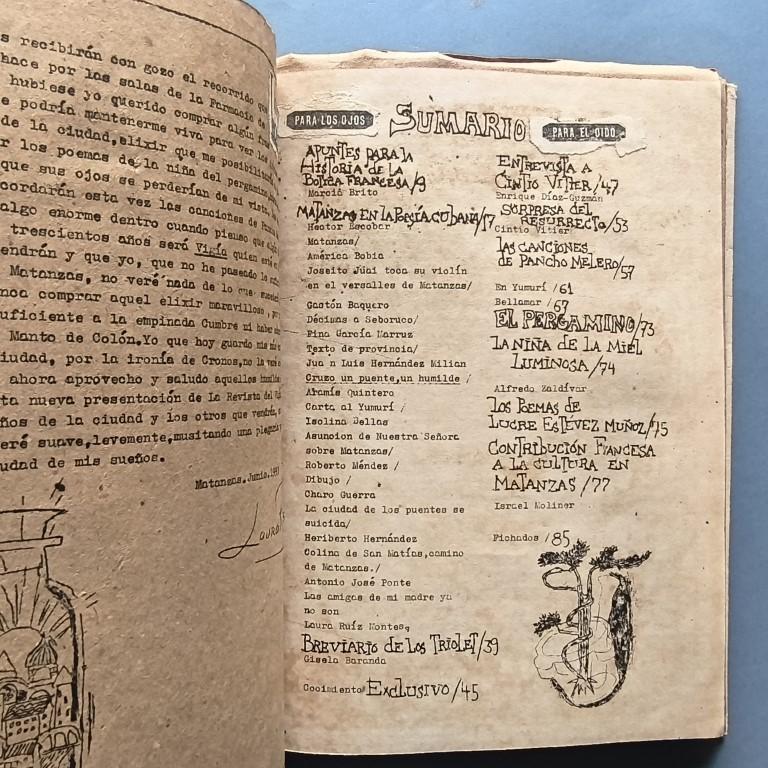 s recibirán con gozo el recorrido que
hace por las salas de la Farmacia de
hubiese yo querido comprar algún
e podría mantenerme viva para ver los
de la ciudad,elixir que me posibilita
r los poemas de la niña del pergamino,
que sus ojos se perderían de mi vista,
cordarán esta vez las canciones de
algo enorme dentro cuando pienso que
trescientos años será Vigía quien esté
endrán y que yo, que no he pasado
Matanzas, no veré nada de lo que
nca comprar aquel elixir maravilloso,
uficiente a la empinada Cumbre mi haber
Manto de Colón.Yo que hoy guardo mis
iudad, por la ironía de Cronos,no la veré
ahora aprovecho y saludo aquellos
ta nueva presentación de La Revista del
ños de la ciudad y los otros que vendrán,
eré suave,levemente,musitando una plegaria
udad de mis sueños.
Matanzas.Junio.199
Laura
PARA LOS OJOS
SUMARIO
PARA EL OIDO
APUNTES PARA LA
HISTORIA DE LA
BOTICA FRANCESA/9
Marcia Brito
MATANZAS EN LA POESÍA CUBANA/17
Héctor Escobar
Matanzas/
América Bobia
Joseito Juai toca su violín
en el versalles de Matanzas/
Gastón Baquero
Décimas a Seboruco/
Fina García Marruz
Texto de provincia/
Jua n Luis Hernández Milian
Cruzo un puente,un humilde /
Aramís Quintero
Carta al Yumurí /
Isolina Bellas
Asuncion de Nuestra Señora
sobre Matanzas/
Roberto Méndez /
Dibujo /
Charo Guerra
La ciudad de los puentes se
suicida/
Heriberto Hernández
Colina de San Matías,camino
de Matanzas./
Antonio José Ponte
Las amigas de mi madre ya
no son
Laura Ruíz Montes,
BREVIARIO DE LOS TRIOLET/39
Gisela Baranda
Cocimiento EXCLUSIVO/45
ENTREVISTA A
CINTIO VITIER/47
Enrique Díaz-Guzmán
SORPRESA DEL
RESURRECTO/53
Cintio Vitier
LAS CANCIONES
DE PANCHO MELERO/57
En Yumurí /61
Bellamar /67
EL PERGAMINO/73
LA NIÑA DE LA MIEL
LUMINOSA /74
Alfredo Zaldívar
LOS POEMAS DE
LUCRE ESTÉVEZ MUÑOZ/75
CONTRIBUCIÓN FRANCESA
A LA CULTURA EN
MATANZAS /77
Israel Moliner
Fichados /85